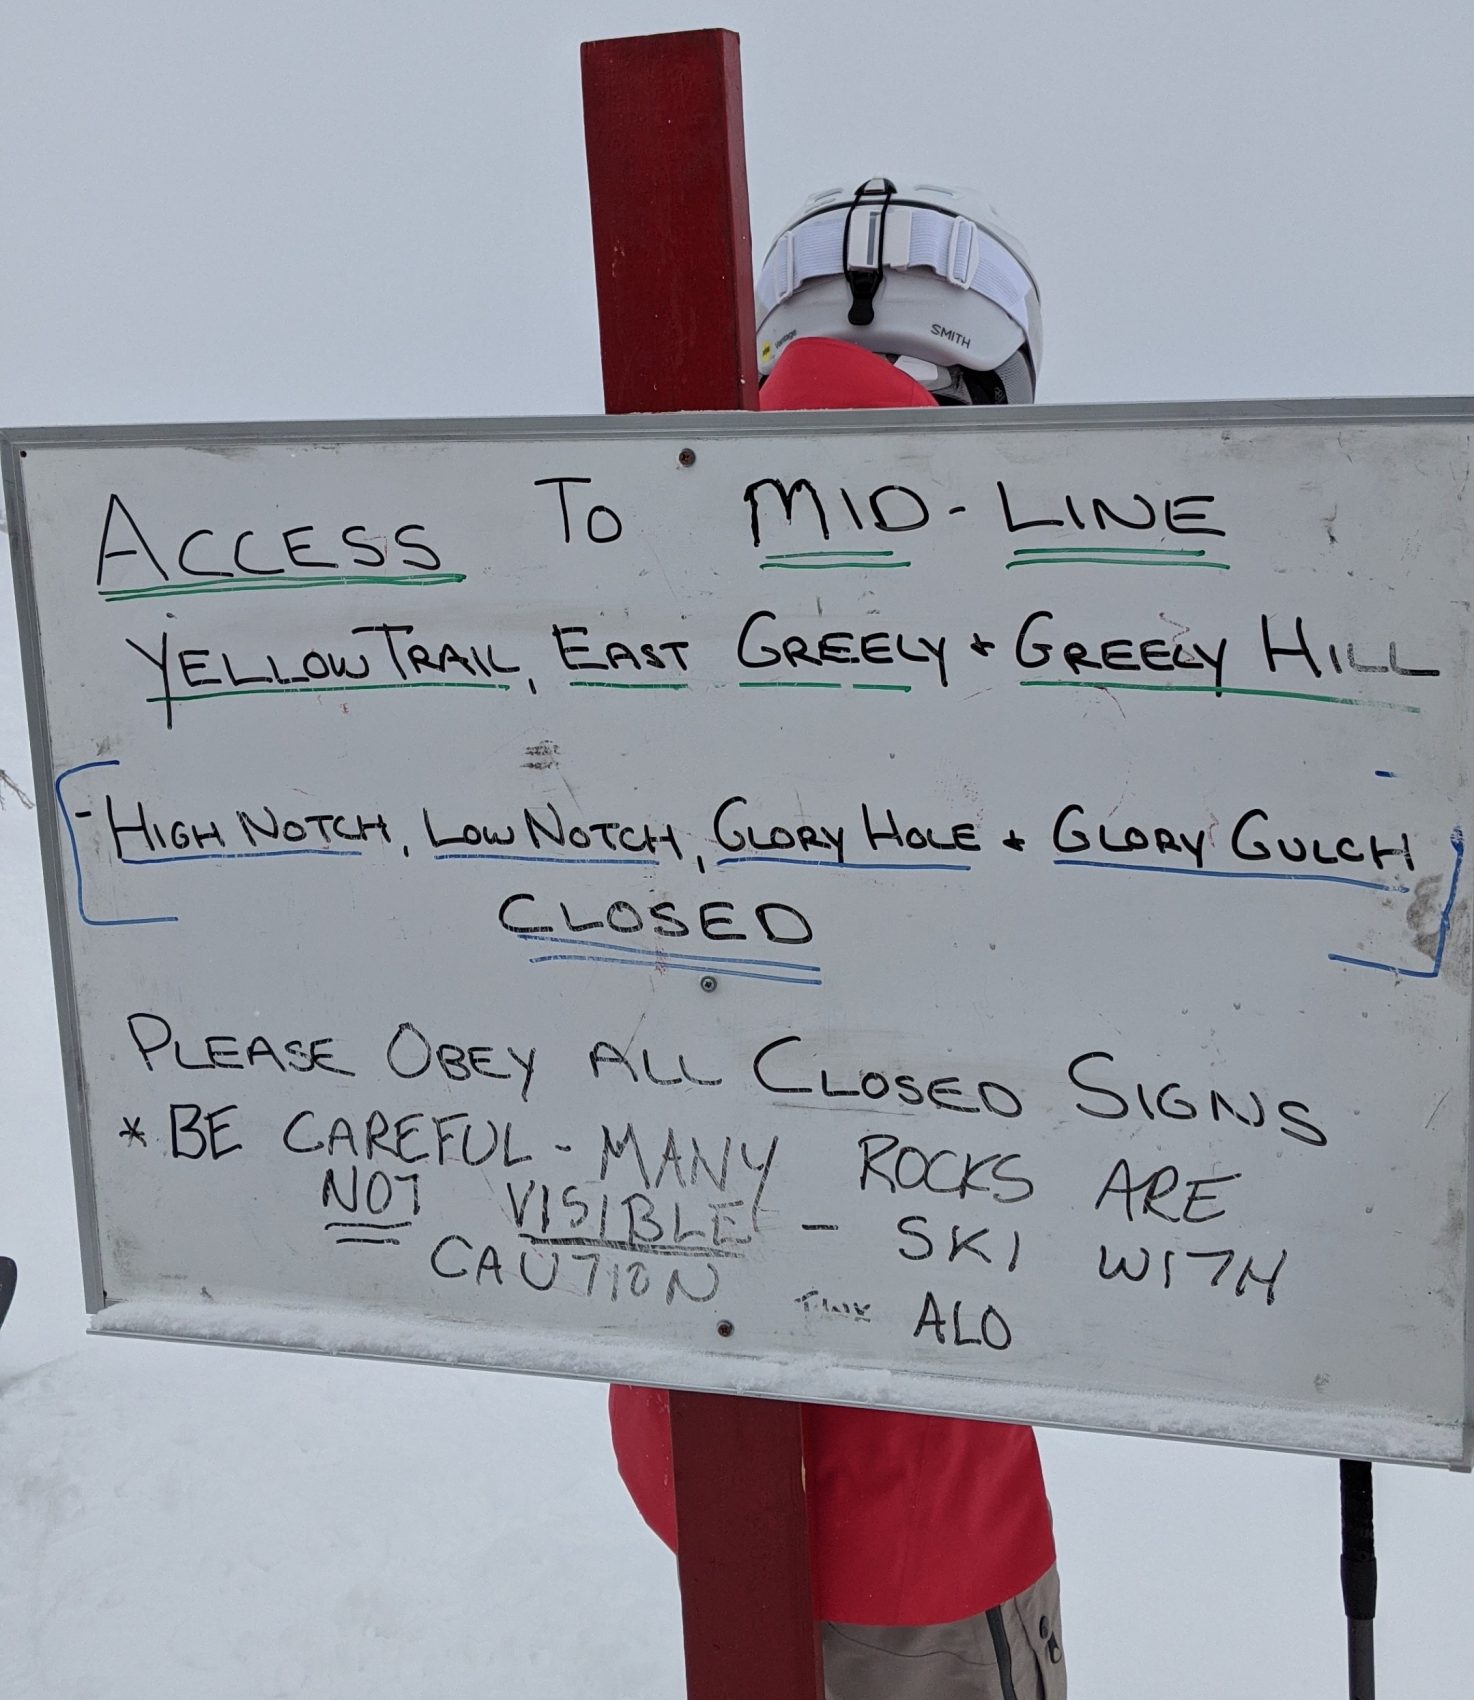 Vantage
SMITH
ACCESS TO MID-LINE
YELLOW TRAIL, EAST GREELY + GREELY HILL
-HIGH NOTCH, LOW NOTCH, GLORY HOLE + GLORY GULCH
CLOSED
PLEASE OBEY ALL CLOSED SIGNS
* BE CAREFUL - MANY ROCKS ARE
NOT VISIBLE - SKI WITH
CAUTION
ALO